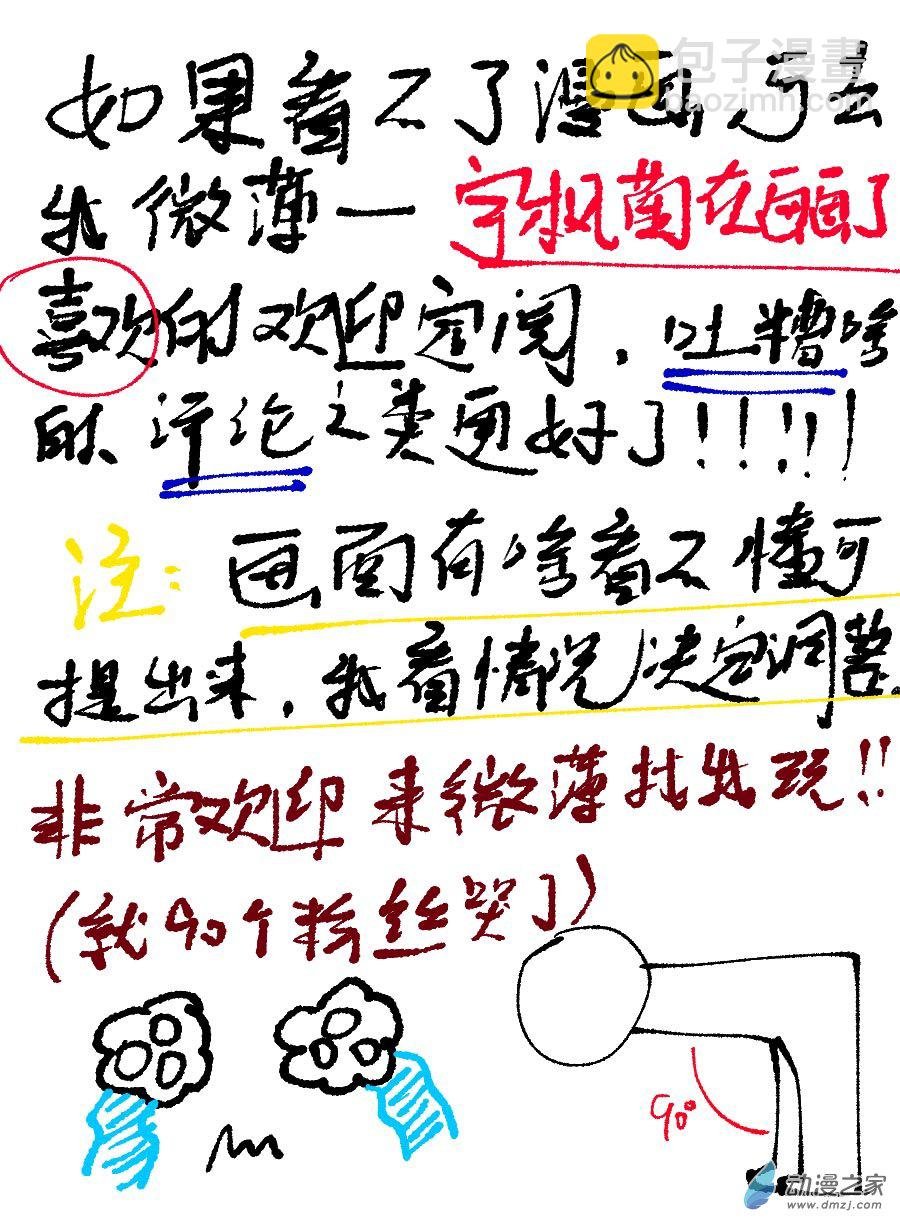 如果看不了漫画可去
包子漫畫
baozimh.com
我微薄一宇枫菌在画画了
喜欢的欢迎定阅，吐槽啥
的、评论之类更好了!!!!!
注：画面有啥看不懂可
提出来，我看情况决定调整.
非常欢迎来微薄找我玩!!
(就90个粉丝哭了)
90°
动漫之家
www.dmzj.com